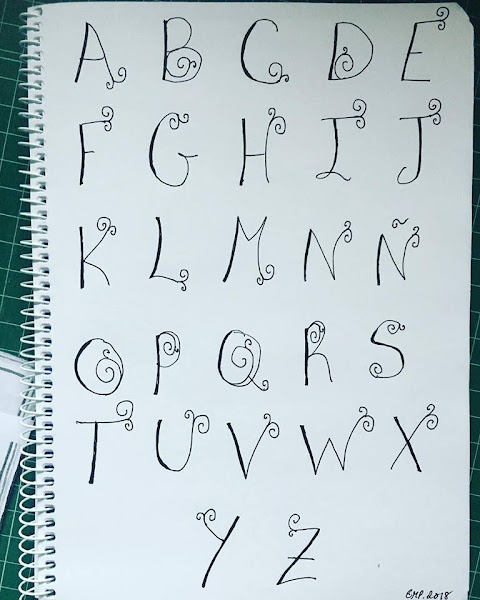 A B C D E
F G H I J
K L M N Ñ
O P Q R S
T U V W X
Y Z
EMP. 2018